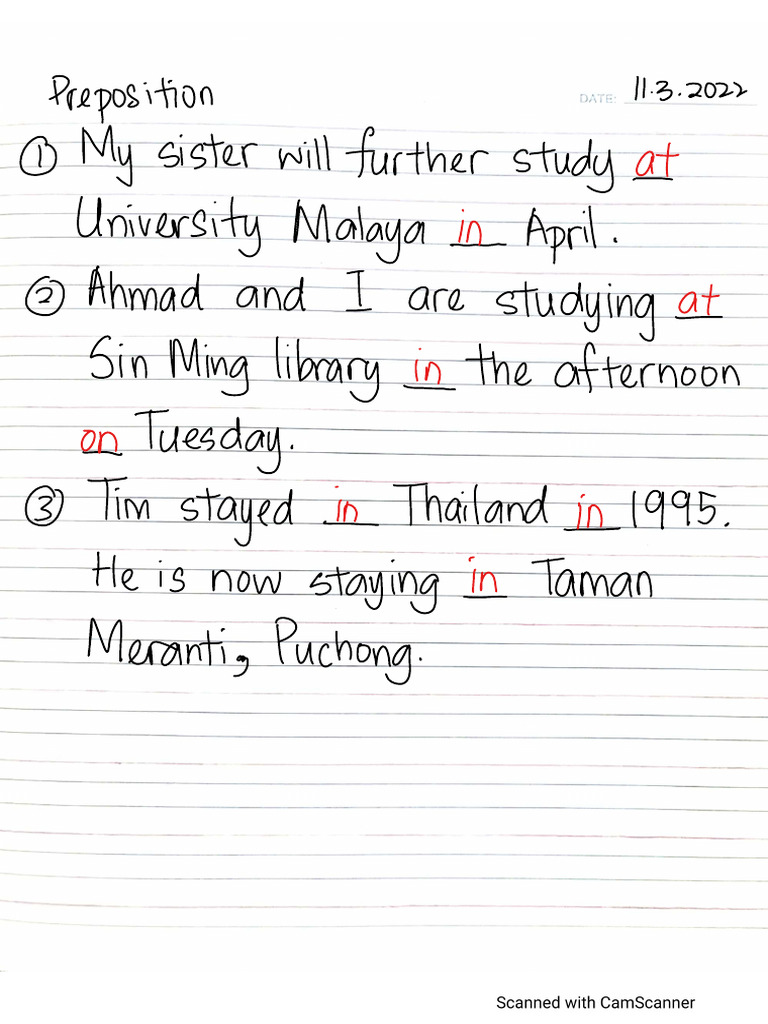 Preposition
DATE: 11.3.2022
① My sister will further study at
University Malaya in April.
② Ahmad and I are studying at
Sin Ming library in the afternoon
on Tuesday.
③ Tim stayed in Thailand in 1995.
He is now staying in Taman
Meranti, Puchong.
Scanned with CamScanner